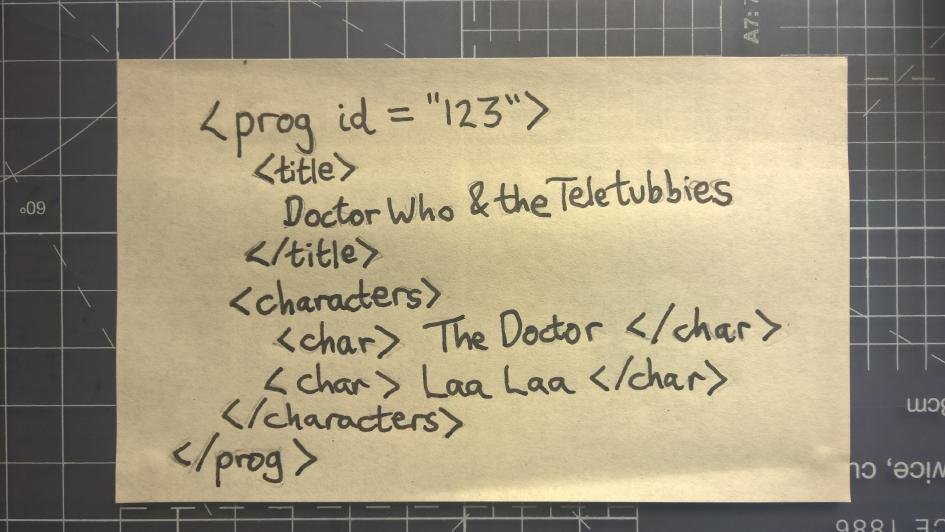 <prog id = "123">
<title>
Doctor Who & the Teletubbies
</title>
<characters>
<char> The Doctor </char>
<char> Laa Laa </char>
</characters>
</prog>
A7:
60°
3cm
vice, cu
CE 1886